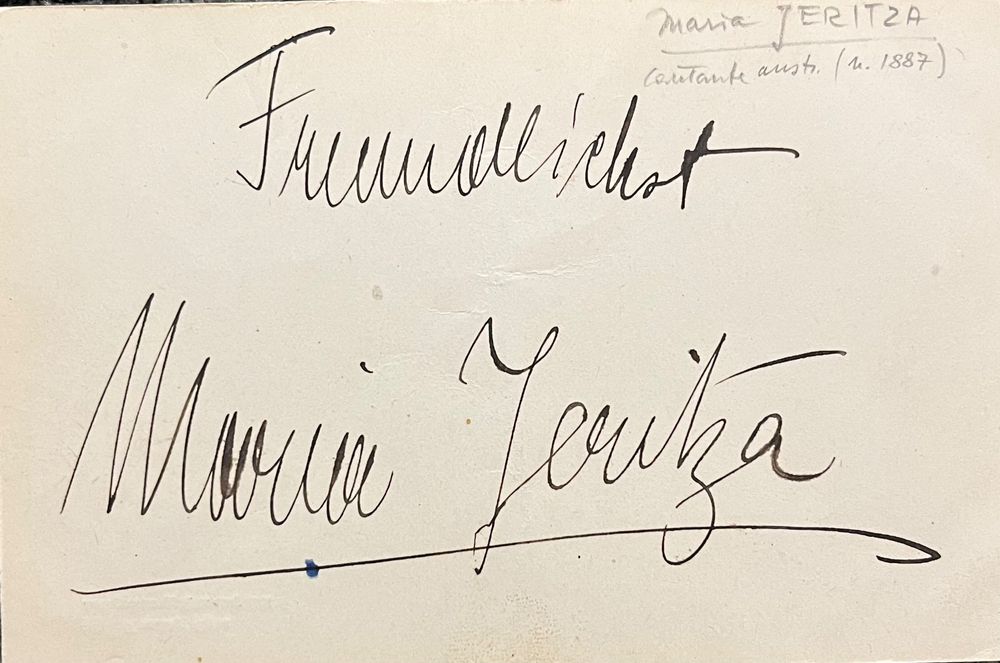 Maria JERITZA
cantante austr. (n. 1887)
Freundlichst
Maria Jeritza